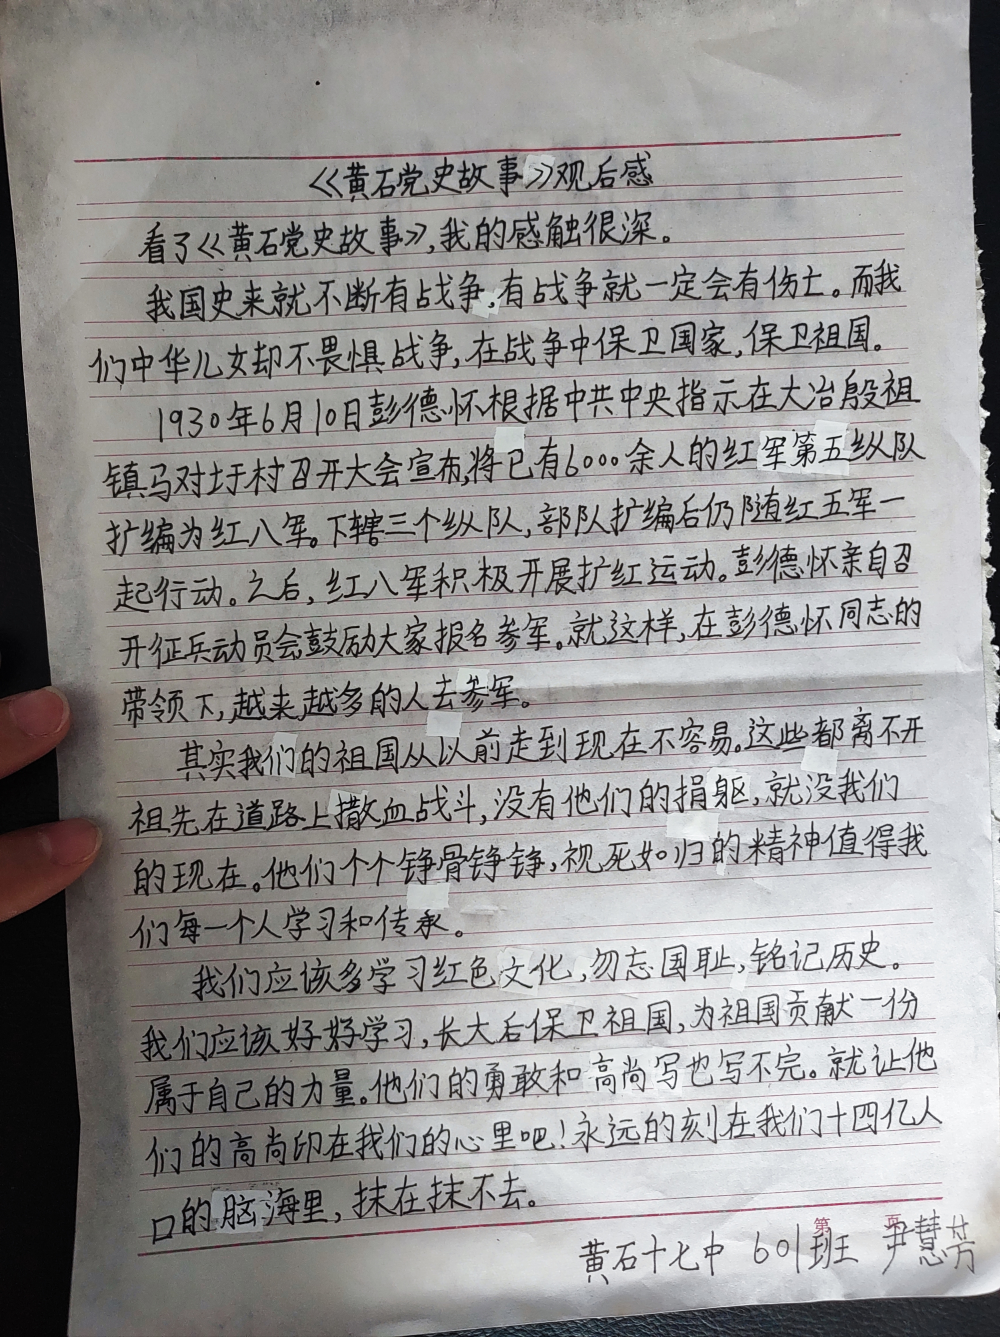 《黄石党史故事》观后感
看了《黄石党史故事》，我的感触很深。
我国史来就不断有战争，有战争就一定会有伤亡。而我
们中华儿女却不畏惧战争，在战争中保卫国家，保卫祖国。
1930年6月10日彭德怀根据中共中央指示在大冶殷祖
镇马对圩村召开大会宣布，将已有6000余人的红军第五纵队
扩编为红八军。下辖三个纵队，部队扩编后仍随红五军一
起行动。之后，红八军积极开展扩红运动。彭德怀亲自召
开征兵动员会鼓励大家报名参军。就这样，在彭德怀同志的
带领下，越来越多的人去参军。
其实我们的祖国从以前走到现在不容易。这些都离不开
祖先在道路上撒血战斗，没有他们的捐躯，就没我们
的现在。他们个个铮骨铮铮，视死如归的精神值得我
们每一个人学习和传承。
我们应该多学习红色文化，勿忘国耻，铭记历史。
我们应该好好学习，长大后保卫祖国，为祖国贡献一份
属于自己的力量。他们的勇敢和高尚写也写不完。就让他
们的高尚印在我们的心里吧！永远的刻在我们十四亿人
口的脑海里，抹在抹不去。
第 页
黄石十七中 601班 尹慧芳